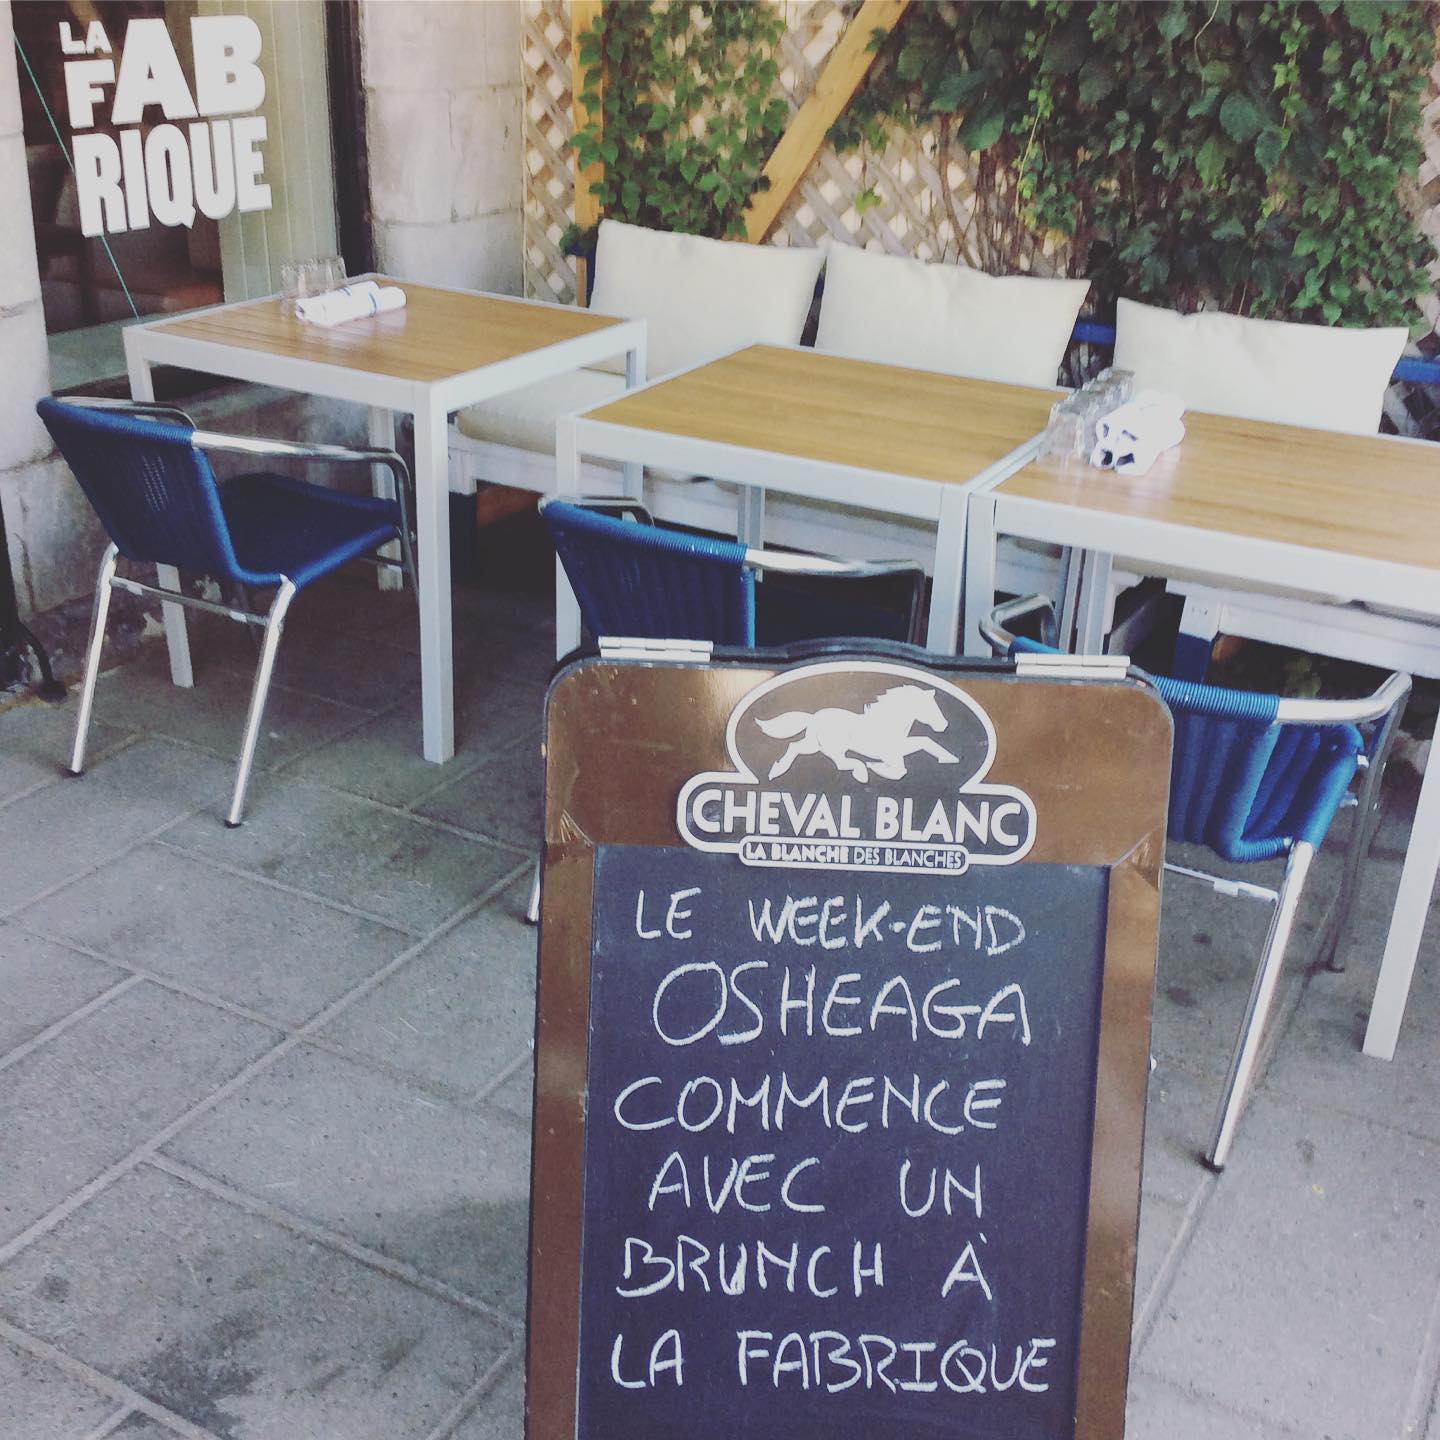 LA
FAB
RIQUE
CHEVAL BLANC
LA BLANCHE DES BLANCHES
LE WEEK-END
OSHEAGA
COMMENCE
AVEC UN
BRUNCH À
LA FABRIQUE